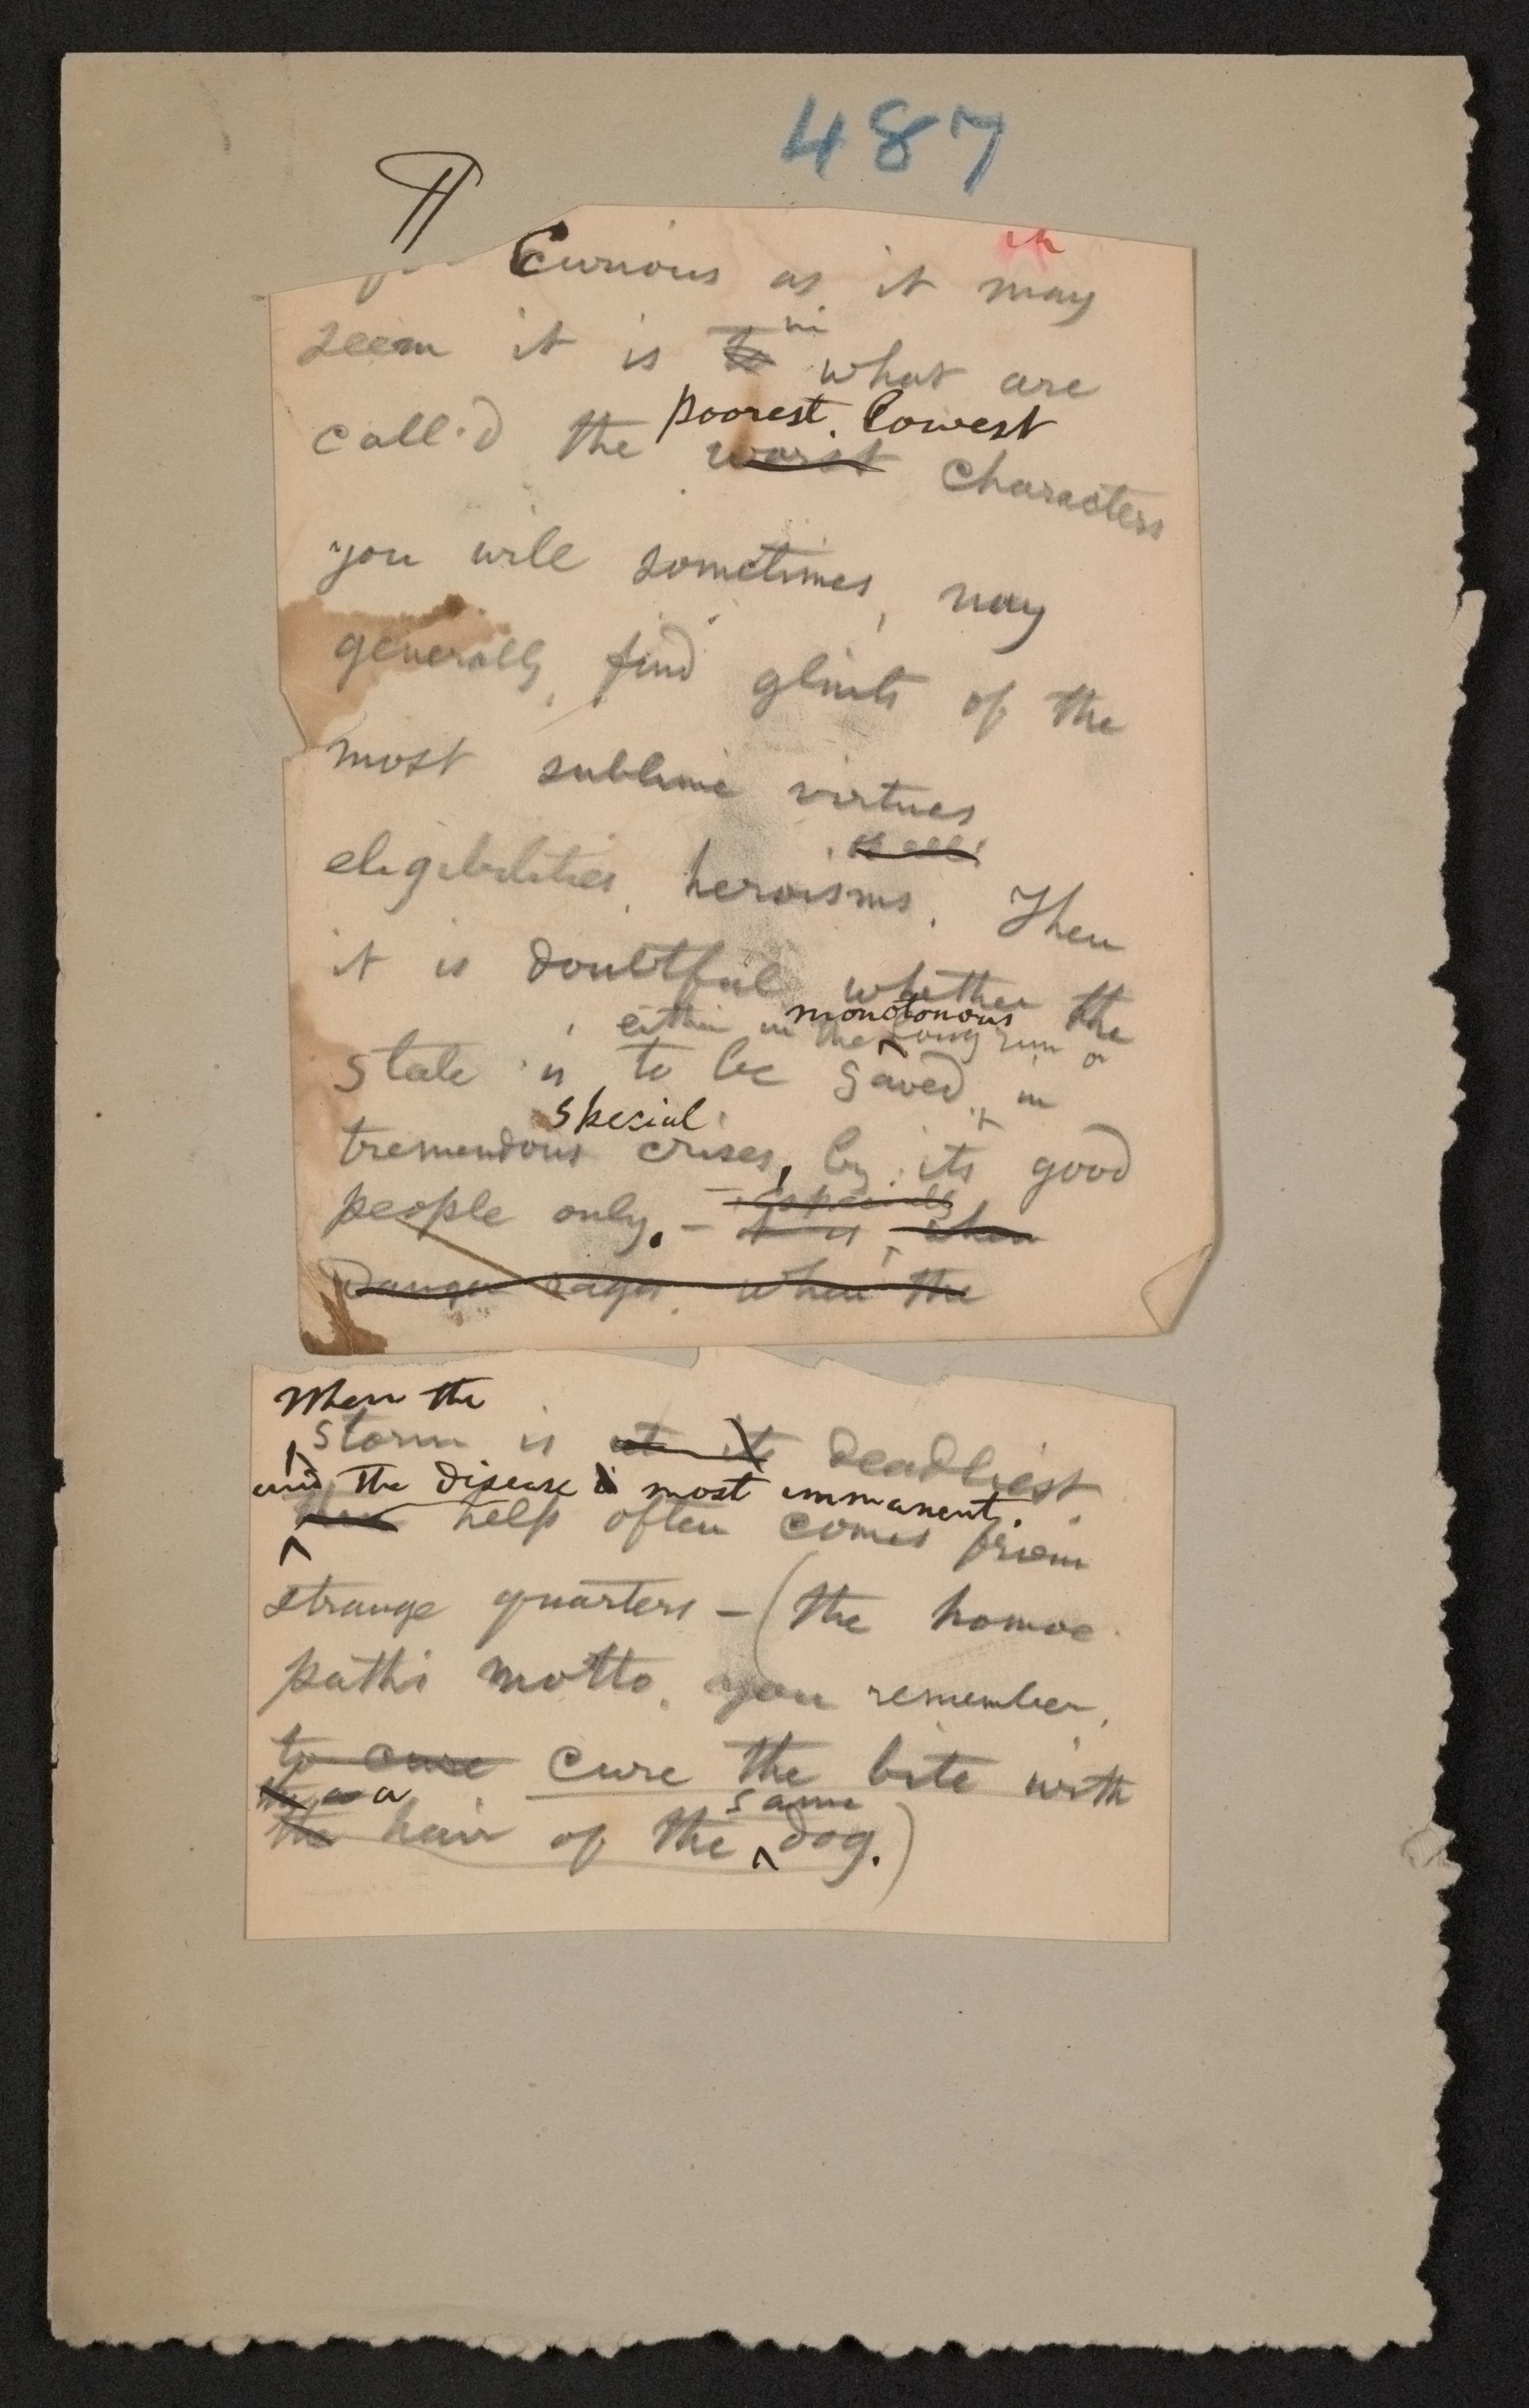 487
¶ Curious as it may
seem it is in what are
poorest, lowest
call'd the worst characters
you will sometimes, nay
generally, find glints of the
most sublime virtues
eligibilities, heroisms. Then
it is doubtful whether the
monotonous
, either in the long run or
State is to be saved, in
special
tremendous crises, by its good
especially
people only. – when
Danger rages. when the
When the
storm is at its deadliest
and the disease is most immanent,
then help often comes from
strange quarters – (the homoe
pathi motto, you remember,
to cure cure the bite with
a same
the hair of the dog.)